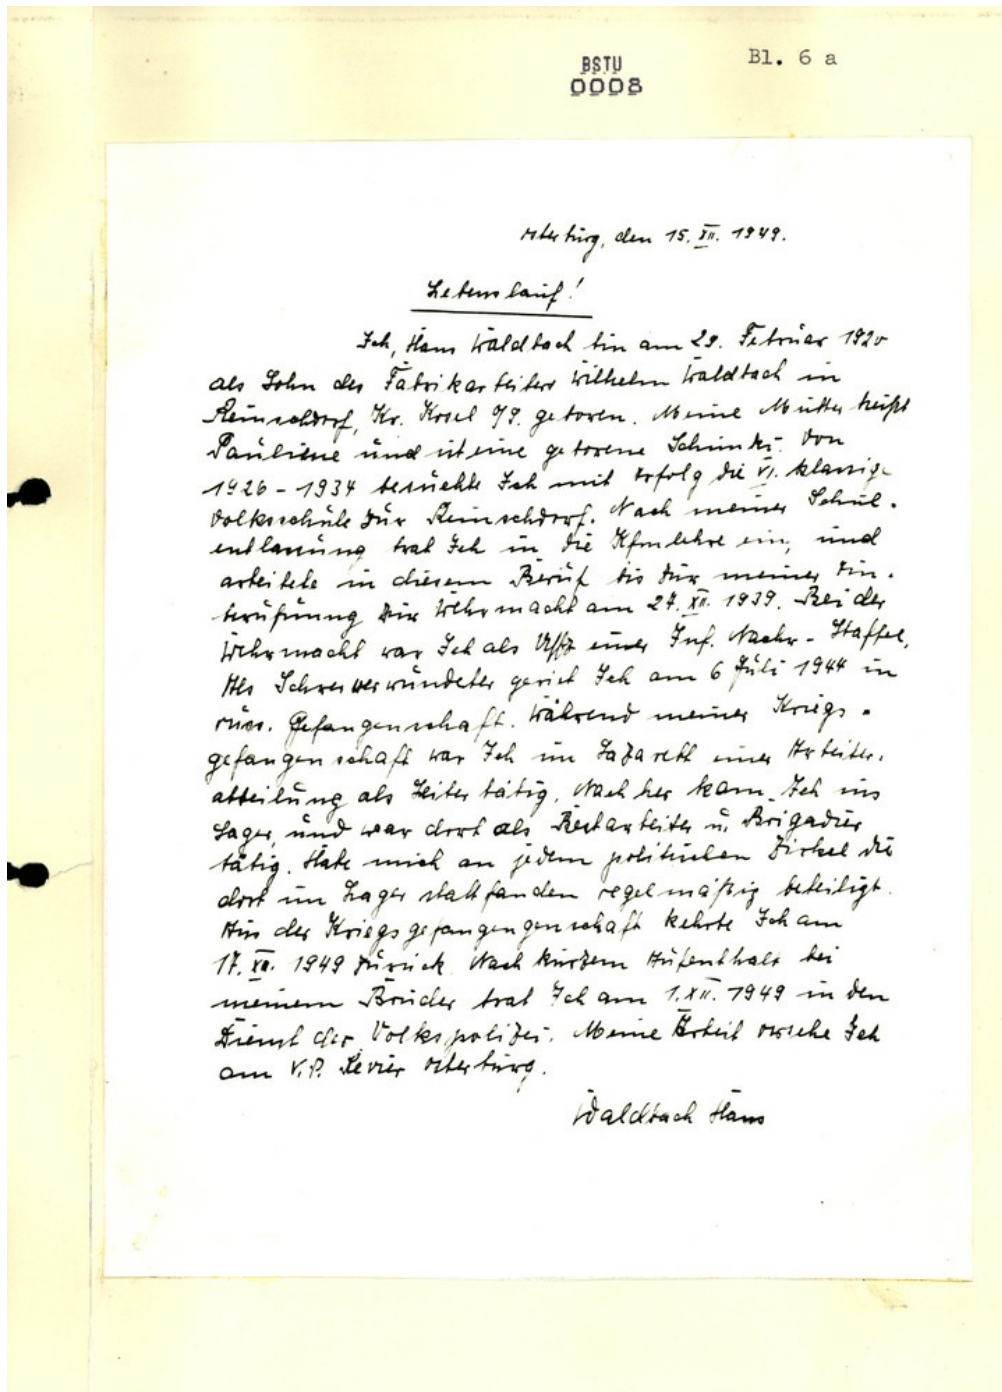 BSTU
0008
Bl. 6 a
Osterburg, den 15. XII. 1949.
Lebenslauf!
Ich, Hans Waldbach bin am 29. Februar 1920
als Sohn des Fabrikarbeiters Wilhelm Waldbach in
Reinschdorf, Kr. Kosel O/S. geboren. Meine Mutter heißt
Pauliene und ist eine geborene Schimki. Von
1926 - 1934 besuchte Ich mit Erfolg die VI. klassige
Volksschule zur Reinschdorf. Nach meiner Schul-
entlassung trat Ich in die Kfmlehre ein, und
arbeitete in diesem Beruf bis zur meiner Ein-
berufunng zur Wehrmacht am 27. XII. 1939. Bei der
Wehrmacht war Ich als Uffz einer Inf. Nachr - Staffel.
Als Schwerverwundeter geriet Ich am 6 Juli 1944 in
russ. Gefangenschaft. Während meiner Kriegs-
gefangenschaft war Ich im Lazarett einer Arbeiter-
abteilung als Leiter tätig. Nach her kam Ich ins
Lager, und war dort als Bestarbeiter u. Brigadier
tätig. Habe mich an jedem politischen Zirkel die
dort im Lager stattfanden regelmäßig beteiligt.
Aus der Kriegsgefangengenschaft kehrte Ich am
17. 1949 zurück. Nach kurzem Aufenthalt bei
meinem Bruder trat Ich am 1. XII. 1949 in den
Dienst der Volkspolizei. Meine Arbeit versehe Ich
am V.P. Revier Osterburg.
Waldbach Hans